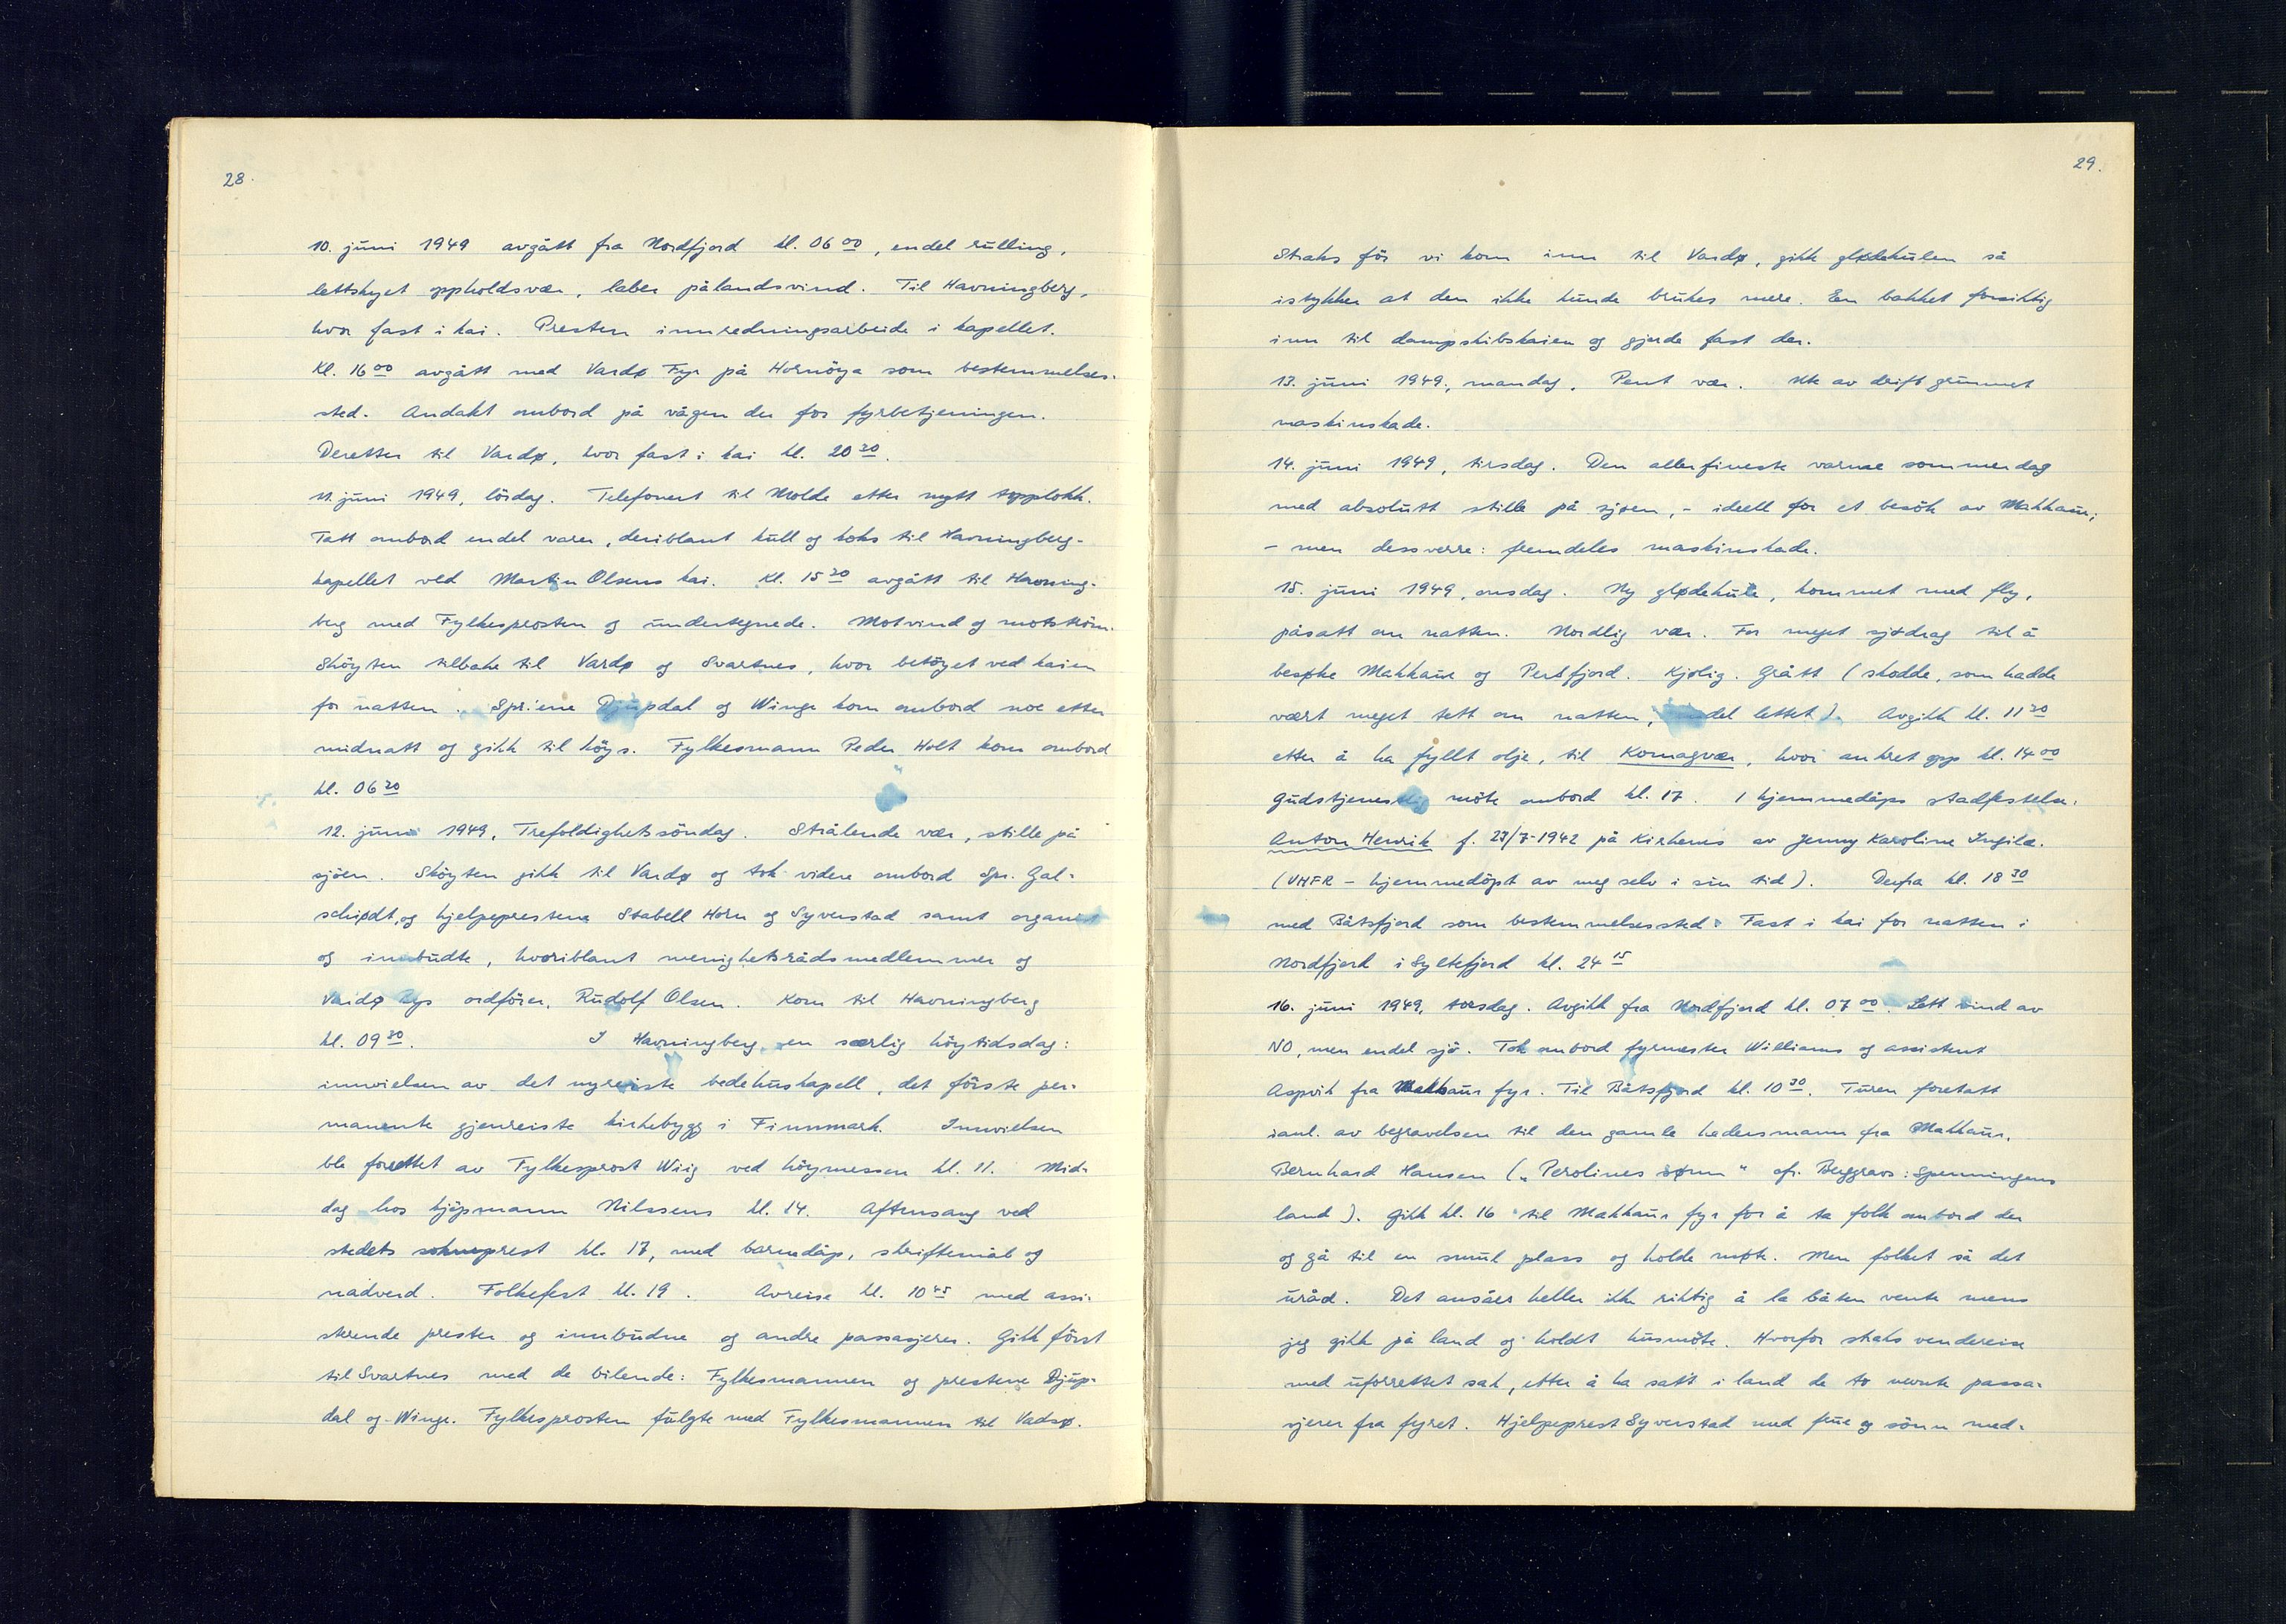 28.
10. juni 1949 avgått fra Nordfjord kl. 06 00, endel rulling,
lettskyet oppholdsvær, laber pålandsvind. Til Havningberg,
hvor fast i kai. Presten innredningsarbeide i kapellet.
Kl. 16 00 avgått med Vardø Fyr på Hornöya som bestemmelses-
sted. Andakt ombord på vågen der for fyrbetjeningen.
Deretter til Vardø, hvor fast i kai kl. 20 30.
11. juni 1949, lördag. Telefonert til Molde etter nytt topplokk.
Tatt ombord endel varer, deriblant kull og koks til Havningberg-
kapellet ved Martin Olsens kai. Kl. 15 30 avgått til Havning-
berg med Fylkesprosten og undertegnede. Motvind og motström.
Sköyten tilbake til Vardø og Svartnes, hvor betöyet ved kaien
for natten. Spr.ene Djupdal og Winge kom ombord noe etter
midnatt og gikk til köys. Fylkesmann Peder Holt kom ombord
kl. 06 20
12. juni 1949, Trefoldighetssöndag. Strålende vær, stille på
sjöen. Sköyten gikk til Vardø og tok videre ombord Spr. Gal-
schiødt, og hjelpeprestene Stabell Horn og Syverstad samt organist
og innbudte, hvoriblant menighetsrådsmedlemmer og
Vardø bys ordförer, Rudolf Olsen. Kom til Havningberg
kl. 09 30. I Havningberg en særlig höytidsdag:
innvielsen av det nyreiste bedehuskapell, det förste per-
manente gjenreiste kirkebygg i Finnmark. Innvielsen
ble forrettet av Fylkesprost Wiig ved höymessen kl. 11. Mid-
dag hos kjöpmann Nilssens kl. 14. Aftensang ved
stedets sokneprest kl. 17, med barnedåp, skriftemål og
nadverd. Folkefest kl. 19. Avreise kl. 10 45 med assi-
sterende prester og innbudne og andre passasjerer. Gikk först
til Svartnes med de bilende: Fylkesmannen og prestene Djup-
dal og Winge. Fylkesprosten fulgte med Fylkesmannen til Vadsø.
29.
Straks för vi kom inn til Vardø, gikk glødekulen så
istykker at den ikke kunde brukes mere. En bakket forsiktig
inn til dampskibskaien og gjorde fast der.
13. juni 1949, mandag. Pent vær. Ute av drift grunnet
maskinskade.
14. juni 1949, tirsdag. Den allerfineste varme sommerdag
med absolutt stille på sjøen, - ideell for et besök av Makkaur,
- men dessverre: fremdeles maskinskade.
15. juni 1949, onsdag. Ny glødekule, kommet med fly,
påsatt om natten. Nordlig vær. For meget sjødrag til å
besøke Makkaur og Persfjord. Kjølig. Grått (skodde, som hadde
vært meget tett om natten, endel lettet). Avgikk kl. 11 30
etter å ha fyllt olje, til Komagvær, hvor ankret opp kl. 14 00
Gudstjenestlig möte ombord kl. 17. 1 hjemmedåps stadfestelse.
Anton Henrik f. 27/7-1942 på Kirkenes av Jenny Karoline Ingilæ.
(VHFR - hjemmedöpt av meg selv i sin tid). Derfra kl. 18 30
med Båtsfjord som bestemmelsessted. Fast i kai for natten i
Nordfjord i Syltefjord kl. 24 15
16. juni 1949, torsdag. Avgikk fra Nordfjord kl. 07 00. Lett vind av
NO, men endel sjö. Tok ombord fyrmester Williams og assistent
Aspvik fra Makkaur fyr. Til Båtsfjord kl. 10 30. Turen foretatt
ianl. av begravelsen til den gamle hedersmann fra Makkaur,
Bernhard Hansen („Perolines sønn" cfr. Berggravs: Spenningens
land). Gikk kl. 16 til Makkaur fyr for å ta folk ombord der
og gå til en smul plass og holde møte. Men folket så det
uråd. Det ansåes heller ikke riktig å la båten vente mens
jeg gikk på land og holdt husmöte. Hvorfor straks vendereise
med uforrettet sak, etter å ha satt i land de to nevnte passa-
sjerer fra fyret. Hjelpeprest Syverstad med frue og sönn med-